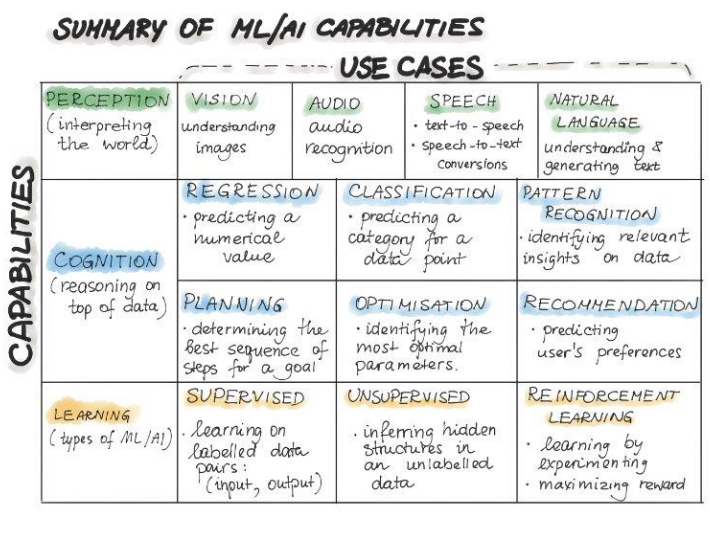 SUMMARY OF ML/AI CAPABILITIES
USE CASES
CAPABILITIES
PERCEPTION
(interpreting
the world)
VISION
understanding
images
AUDIO
audio
recognition
SPEECH
· text-to-speech
· speech-to-text
conversions
NATURAL
LANGUAGE
understanding &
generating text
COGNITION
(reasoning on
top of data)
REGRESSION
· predicting a
numerical
value
CLASSIFICATION
· predicting a
category for a
data point
PATTERN
RECOGNITION
· identifying relevant
insights on data
PLANNING
· determining the
best sequence of
steps for a goal
OPTIMISATION
· identifying the
most optimal
parameters.
RECOMMENDATION
· predicting
user's preferences
LEARNING
(types of ML/AI)
SUPERVISED
· learning on
labelled data
pairs:
(input, output)
UNSUPERVISED
· inferring hidden
structures in
an unlabelled
data
REINFORCEMENT
LEARNING
· learning by
experimenting
· maximizing reward